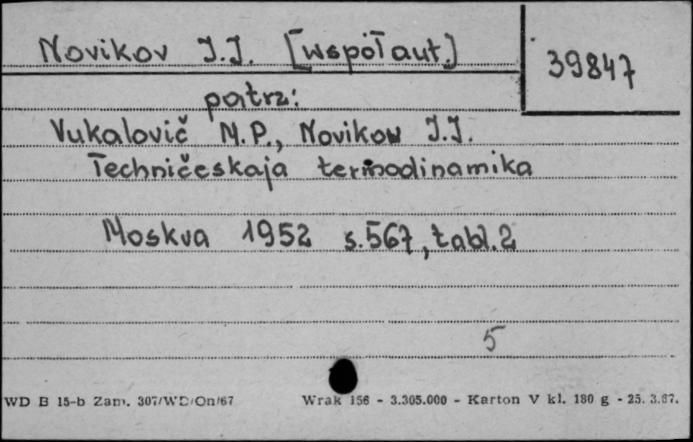 Novikov J.J. [współaut.]
39847
patrz:
Vukalovič M.P., Novikow J.J.
Techničeskaja termodinamika
Moskva 1952 s.567, tabl.2
5
WD B 15-b Zam. 307/WD/On/67 Wrak 156 - 3.305.000 - Karton V kl. 180 g - 25. 3.67.